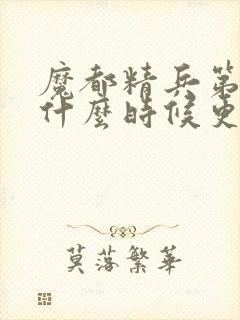 魔都精兵第
什麼時候更
莫落繁華